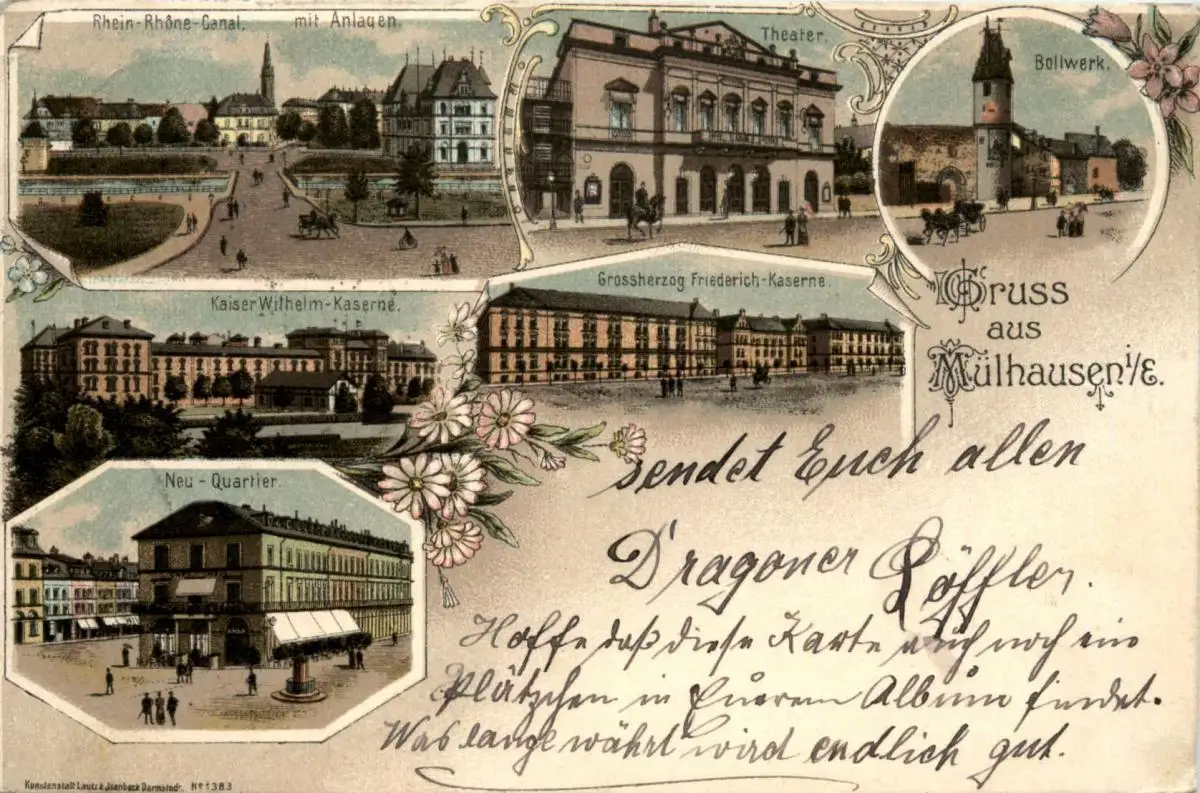 Rhein-Rhône-Canal, mit Anlagen.
Theater.
Bollwerk.
Kaiser Wilhelm-Kaserne.
Grossherzog Friederich-Kaserne.
Gruss
aus
Mülhausen i/E.
Neu-Quartier.
sendet Euch allen
Dragoner Löffler.
Hoffe daß diese Karte auch noch ein
Plätzchen in Euerem Album findet.
Was lange währt wird endlich gut.
Kunstanstalt Lautz & Jsenbeck Darmstadt. No 1383